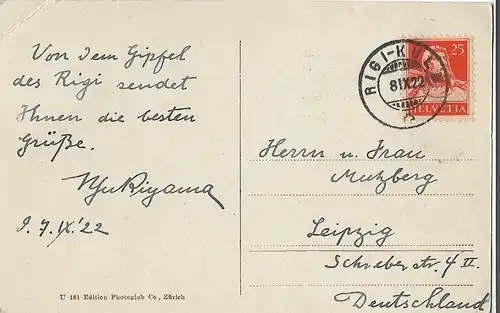 Von dem Gipfel
des Rigi sendet
Ihnen die besten
Grüße.
7. IX. '22
U 161 Edition Photoglob Co., Zürich
RIGI-KULM
8 IX 22
25
HELVETIA
Herrn u. Frau
Mutzberg
Leipzig
Schreberstr. 4 II.
Deutschland